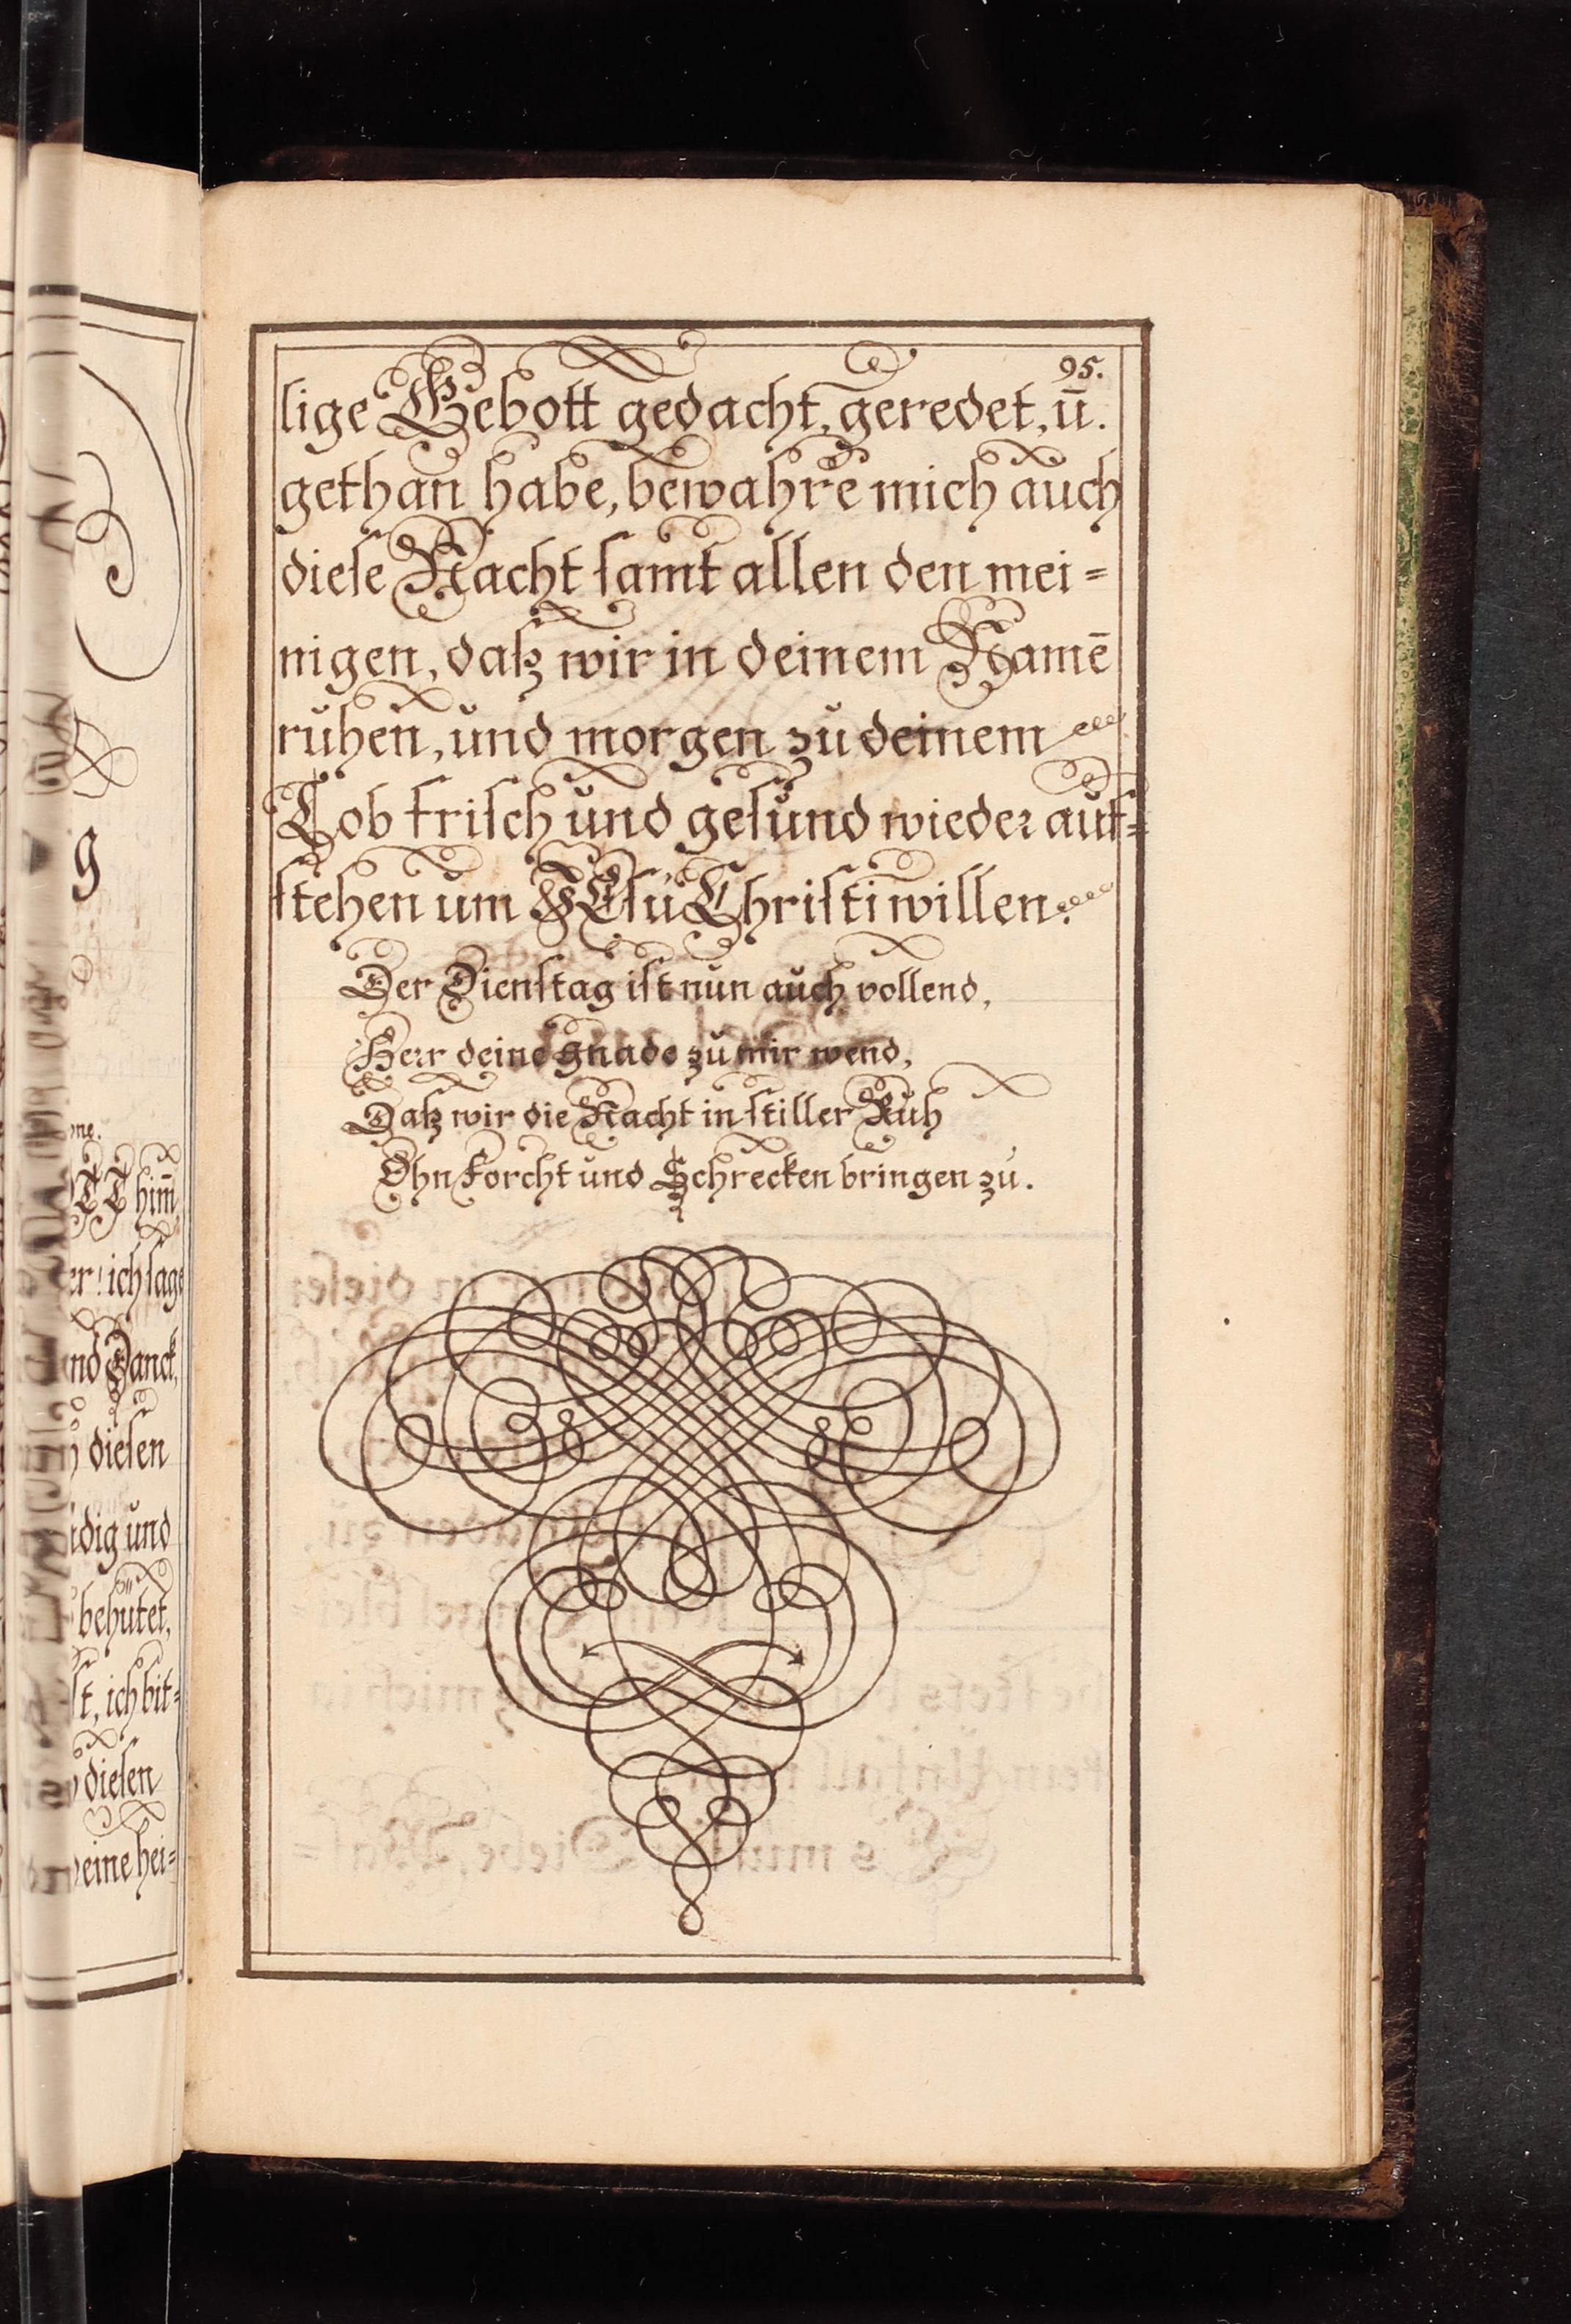 95.
lige Gebott gedacht, geredet, ū.
gethan habe, bewahre mich auch
dieſe Nacht ſamt allen den mei=
nigen, daß wir in deinem Namē
ruhen, und morgen zu deinem
Lob friſch und geſund wieder auf=
ſtehen um JEſu Chriſti willen.
Der Dienſtag iſt nun auch vollend,
Herr deine gnade zu mir wend,
Daß wir die Nacht in ſtiller Ruh
Ohn Forcht und Schrecken bringen zu.
g
me.
TT him̄
er! ich ſage
nd Danck,
dieſen
dig und
behütet,
ſt, ich bit=
dieſen
eine hei=